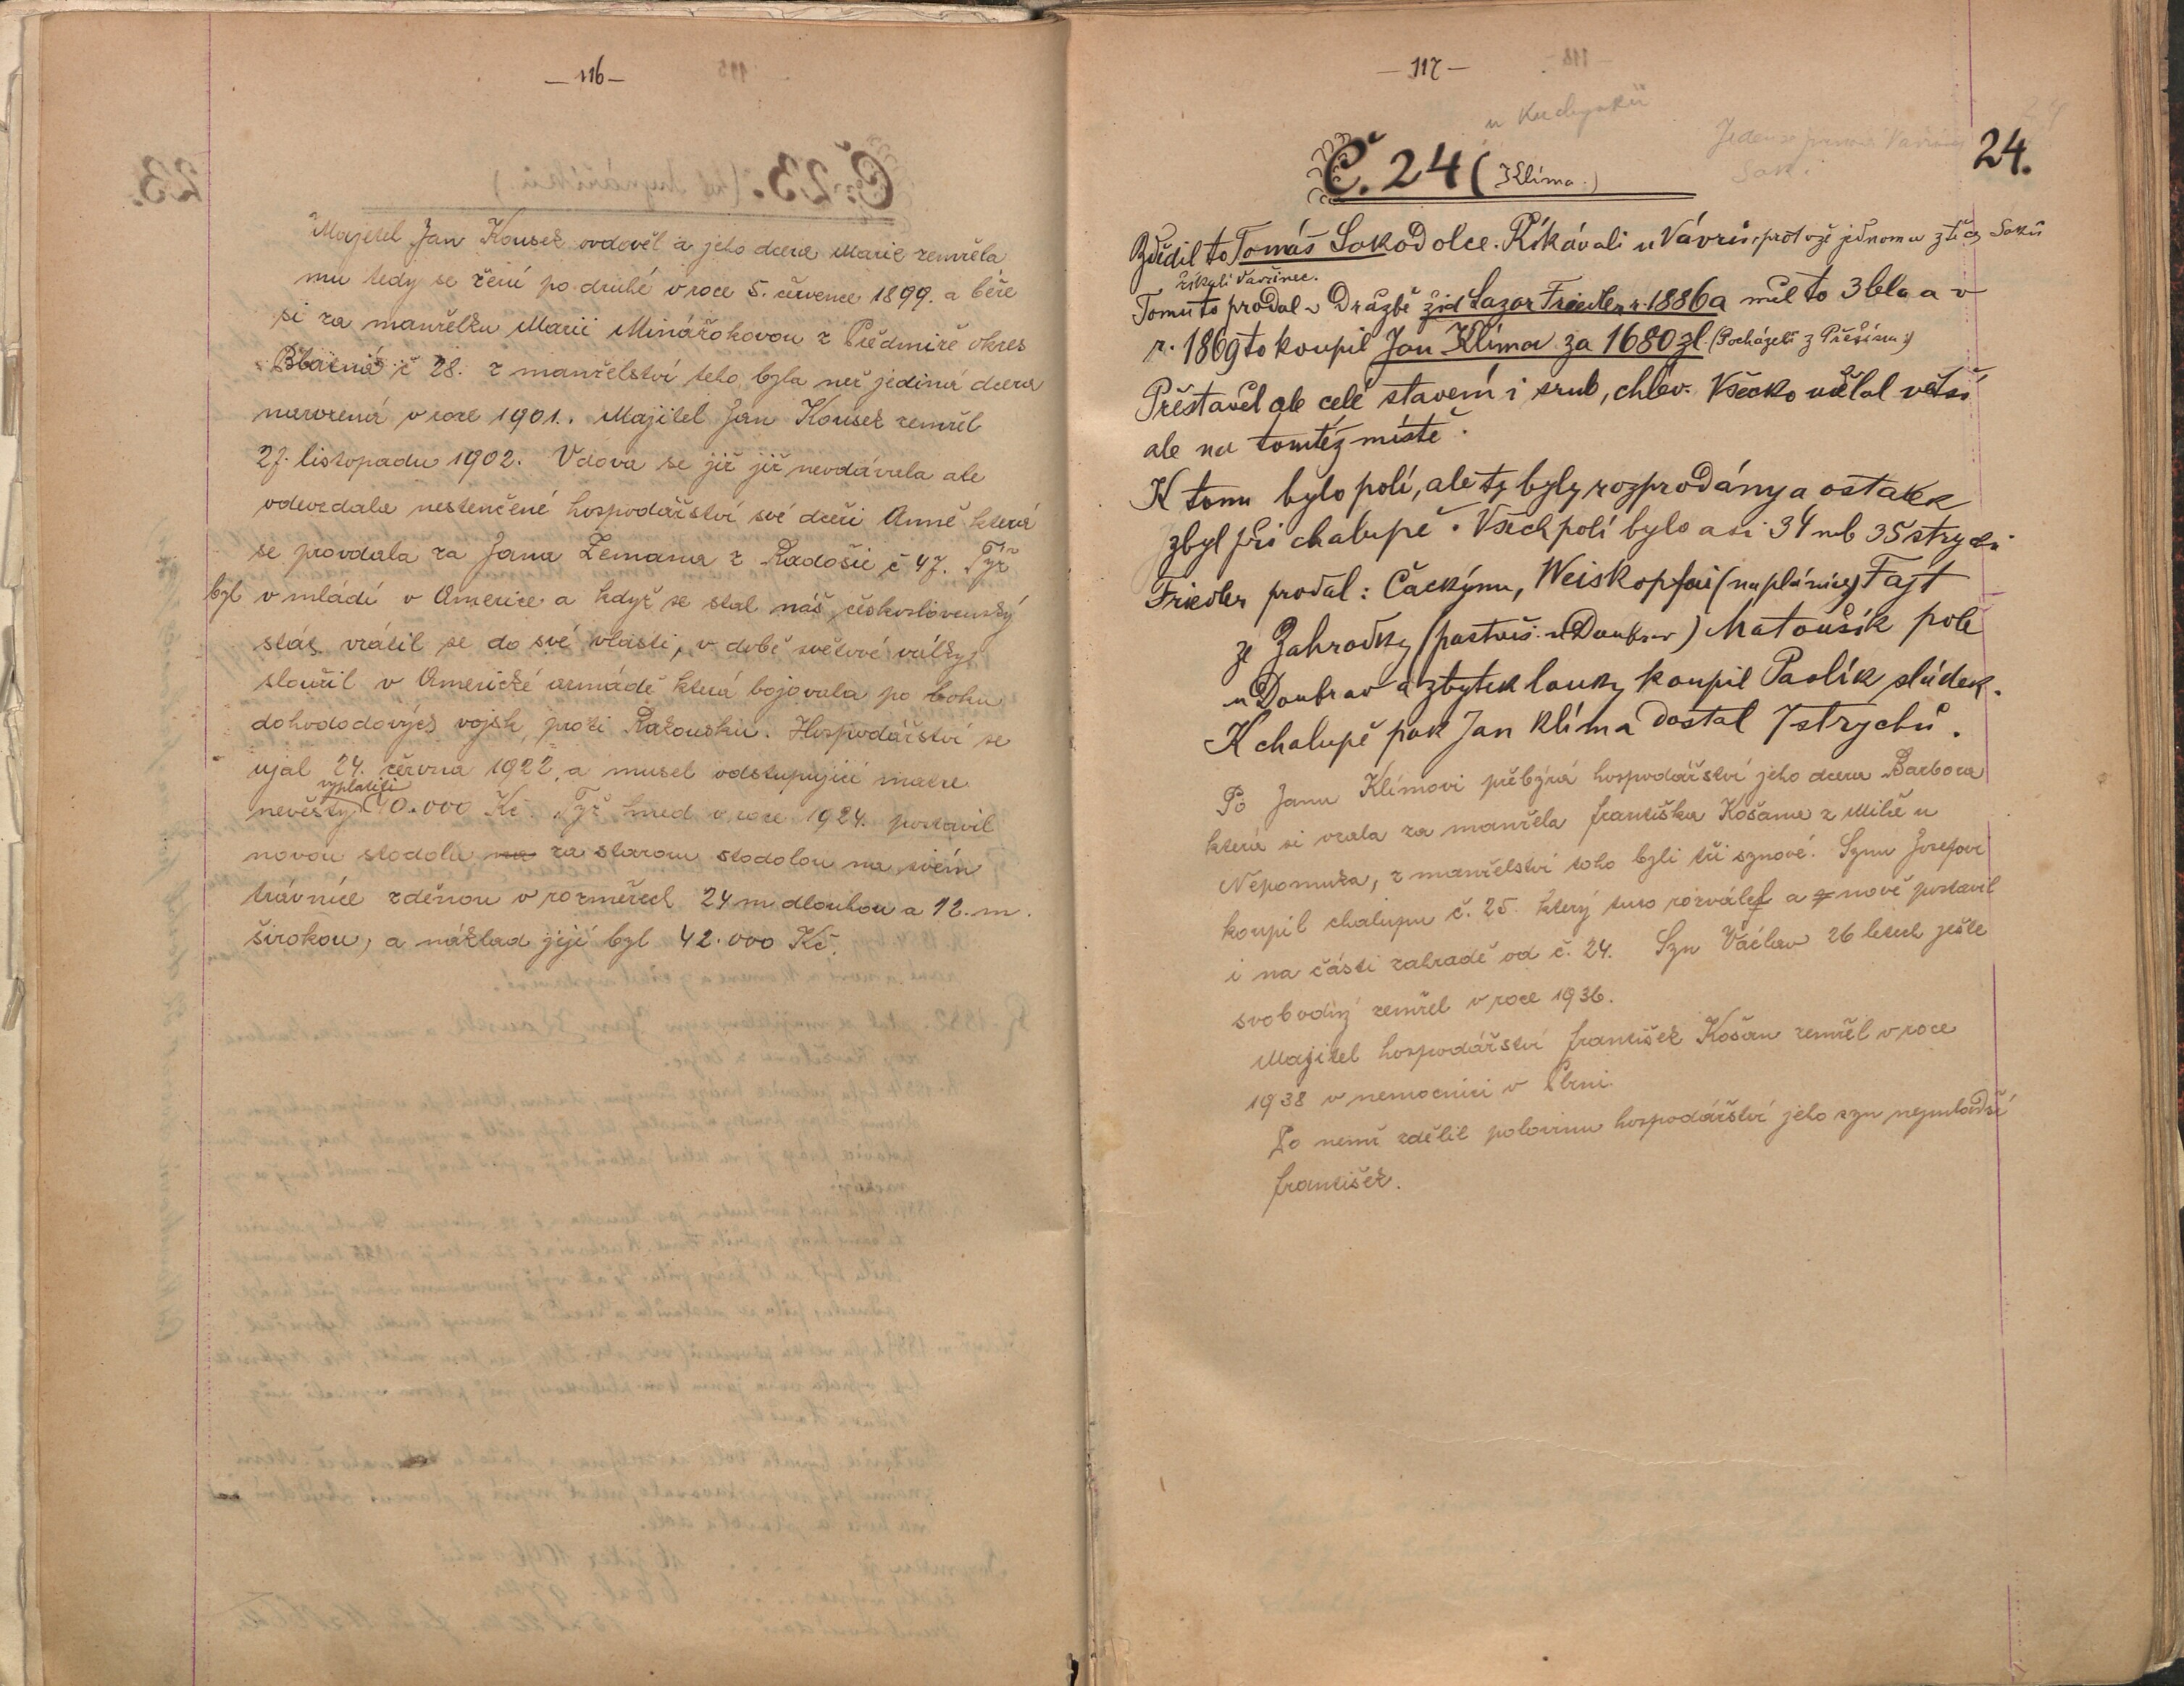 — 116 —
Majetel Jan Kousek ovdověl a jeho dcera Marie zemřela
mu tedy se žení po druhé v roce 5. července 1899. a béře
si za manželku Marii Minářokovou z Předmiře okres
Blatná č 28. z manželství toho byla než jediná dcera
narozená v roce 1901.. Majitel Jan Kousek zemřel
27. listopadu 1902. Vdova se již již nevdávala ale
odevzdala nestenčené hospodářství své dceři Anně která
se provdala za Jana Zemana z Radošic č 47. Týž
byl v mládí v Americe a když se stal náš československý
stát vrátil se do své vlasti, v době světové války
sloužil v Americké armádě která bojovala po boku
dohododových vojsk, proti Rakousku. Hospodářství se
ujal 24. června 1922, a musel odstupující matce
vyplatiti
nevěsty 10.000 Kč. Týž hned v roce 1924. postavil
novou stodolu na za starou stodolou na svém
trávníce zděnou v rozměrech 24 m dlouhou a 12. m.
širokou, a náklad její byl 42.000 Kč.
— 117 —
u
24.
Č. 24 (Klíma.)
Zdědil to Tomáš Sokodolce. Říkávali u Vávrů, protože jednomu z těch Soků
říkali Vavřinec.
Tomuto prodal v Dražbě žid Lazar Friedler r. 1886 a měl to 3 léta a v
r. 1869 to koupil Jan Klíma za 1680 zl. (Pocházeli z Přešína)
Přestavěl ale celé stavení i srub, chlév. Všecko udělal větší
ale na tomtéž místě.
K tomu bylo polí, ale ty byly rozprodány a ostatek
zbyl při chalupě. Všech polí bylo asi 34 neb 35 strychů
Friedler prodal: Čackýmu, Weiskopfovi (na plánice) Fajt
ze Zahrádky (pastviš. u Doubrav) Matoušík pole
u Doubrav a zbytek louky koupil Pavlík sládek.
K chalupě pak Jan Klíma dostal 7 strychů.
Po Janu Klímovi přebýrá hospodářství jeho dcera Barbora
která si vzala za manžela františka Košana z Milče u
Nepomuka, z manželství toho byli tři synové. Synu Josefovi
koupil chalupu č. 25. který tuto rozválel a nově postavil
i na části zahradě od č. 24. Syn Václav 26 letech ješte
svobodný zemřel v roce 1936.
Majitel hospodářství františek Košan zemřel v roce
1938 v nemocnici v Plzni.
Po němž zdělil polovinu hospodářství jeho syn nejmladší
františek.